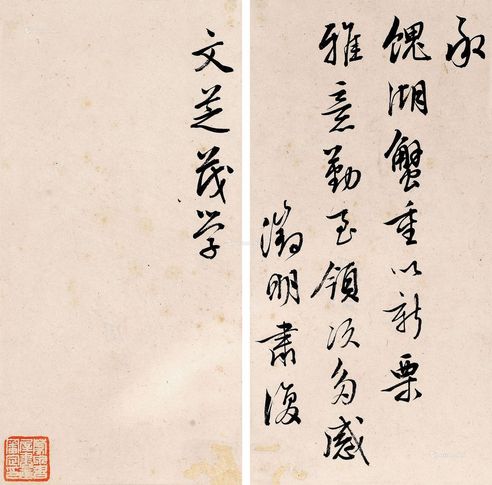 承
餽湖蟹重以新栗
雅意勤至領次多感
徵明肅復
文芝茂学